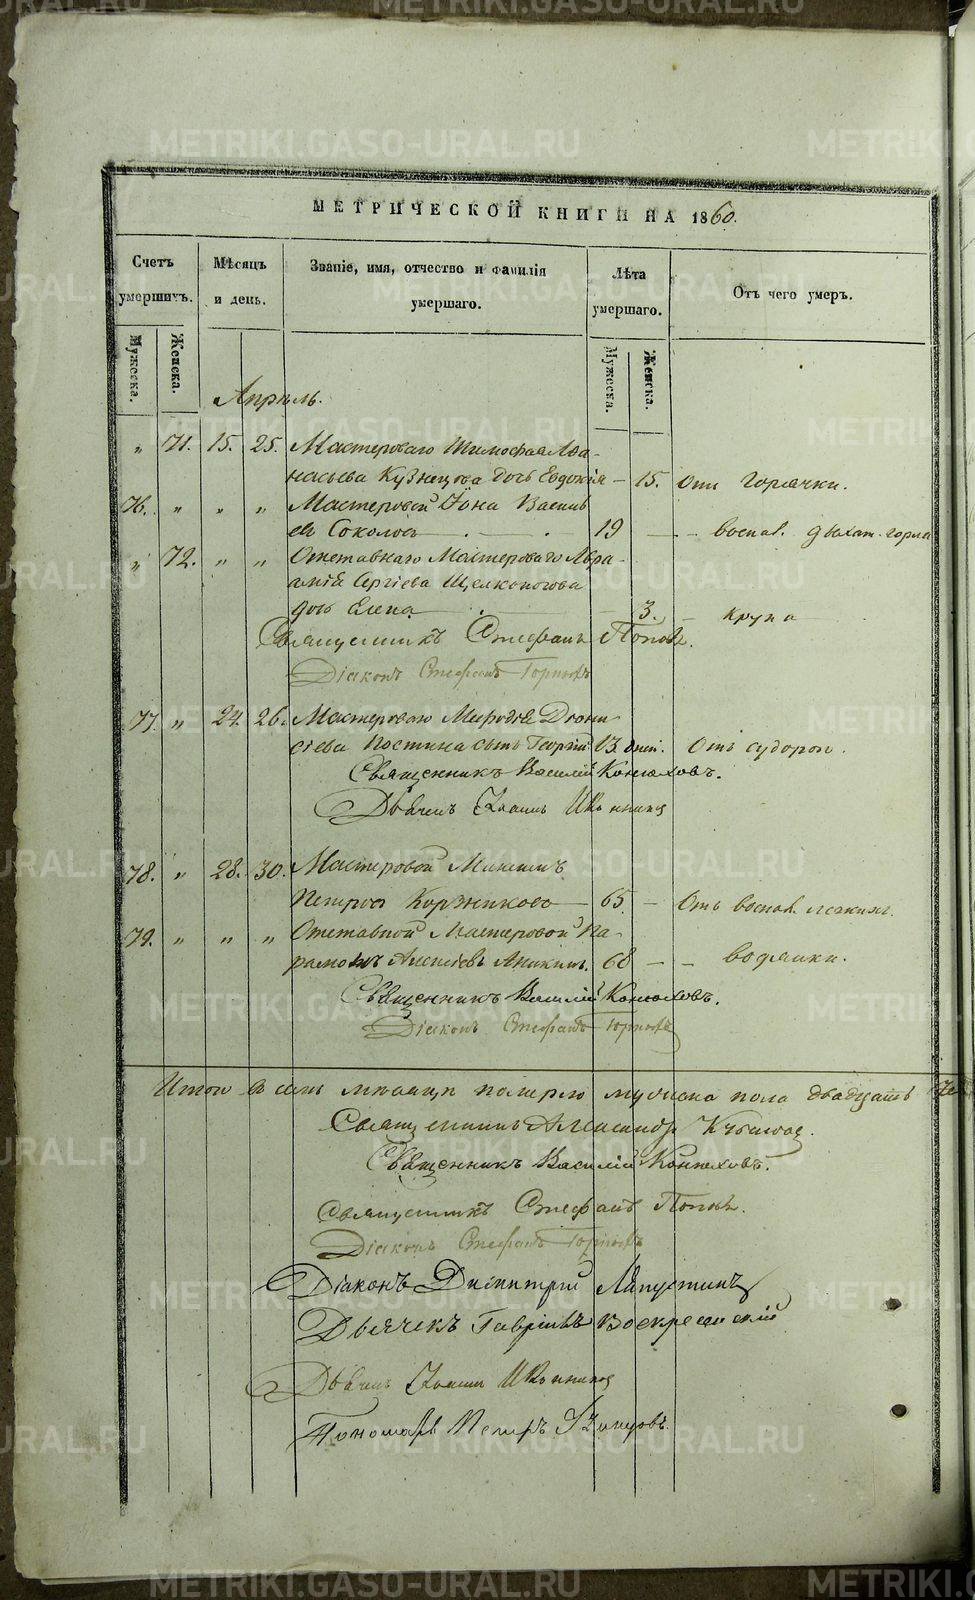 МЕТРИЧЕСКОЙ КНИГИ НА 1860.
Счетъ умершихъ.
Мѣсяцъ и день.
Званіе, имя, отчество и фамилія умершаго.
Лѣта умершаго.
Отъ чего умеръ.
Мужеска.
Женска.
Мужеска.
Женска.
Апрѣль.
„ 71. 15. 25. Мастероваго Тимофея Афа-
насьева Кузнецова дочь Евдокія — 15. Отъ горячки.
76. „ „ „ Мастеровой Іона Василь
евъ Соколовъ 19 — воспал. дыхат. горла
„ 72. „ „ Отставнаго Мастероваго Авра-
амія Сергіева Щелконогова
дочь Елена 3. — крупа
Священникъ Стефанъ Поповъ.
Діаконъ Стефанъ
77. „ 24. 26. Мастероваго Діони-
сіева Постина сынъ Георгій 13 дней. Отъ судорог.
Священникъ Василій Конюховъ.
Дьячекъ Иконниковъ
78. „ 28. 30. Мастеровой Максимъ
Петровъ Коржиковъ — 65. — Отъ воспал.
79. „ „ „ Отставной Мастеровой Па-
рамонъ Алексѣевъ Аникинъ. 68 — — водянки.
Священникъ Василій Конюховъ.
Діаконъ Стефанъ
Итого въ семъ мѣсяцѣ померло мужеска пола двадцать
Священникъ Александръ
Священникъ Василій Конюховъ.
Священникъ Стефанъ Поповъ.
Діаконъ Стефанъ
Діаконъ Димитрій Лапустинъ
Дьячекъ Гавріилъ Воскресенскій
Дьячекъ Иконниковъ
Пономарь Петръ
METRIKI.GASO-URAL.RU